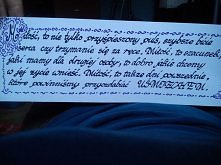 Miłość, to nie tylko przyspieszony puls, szybsze bicie
serca czy trzymanie się za ręce. Miłość, to szacunek,
jaki mamy dla drugiej osoby, to dobro, jakie chcemy
w jej życie wnieść. Miłość, to także dni powszednie,
które powinniśmy przyozdabiać UŚMIECHEM.